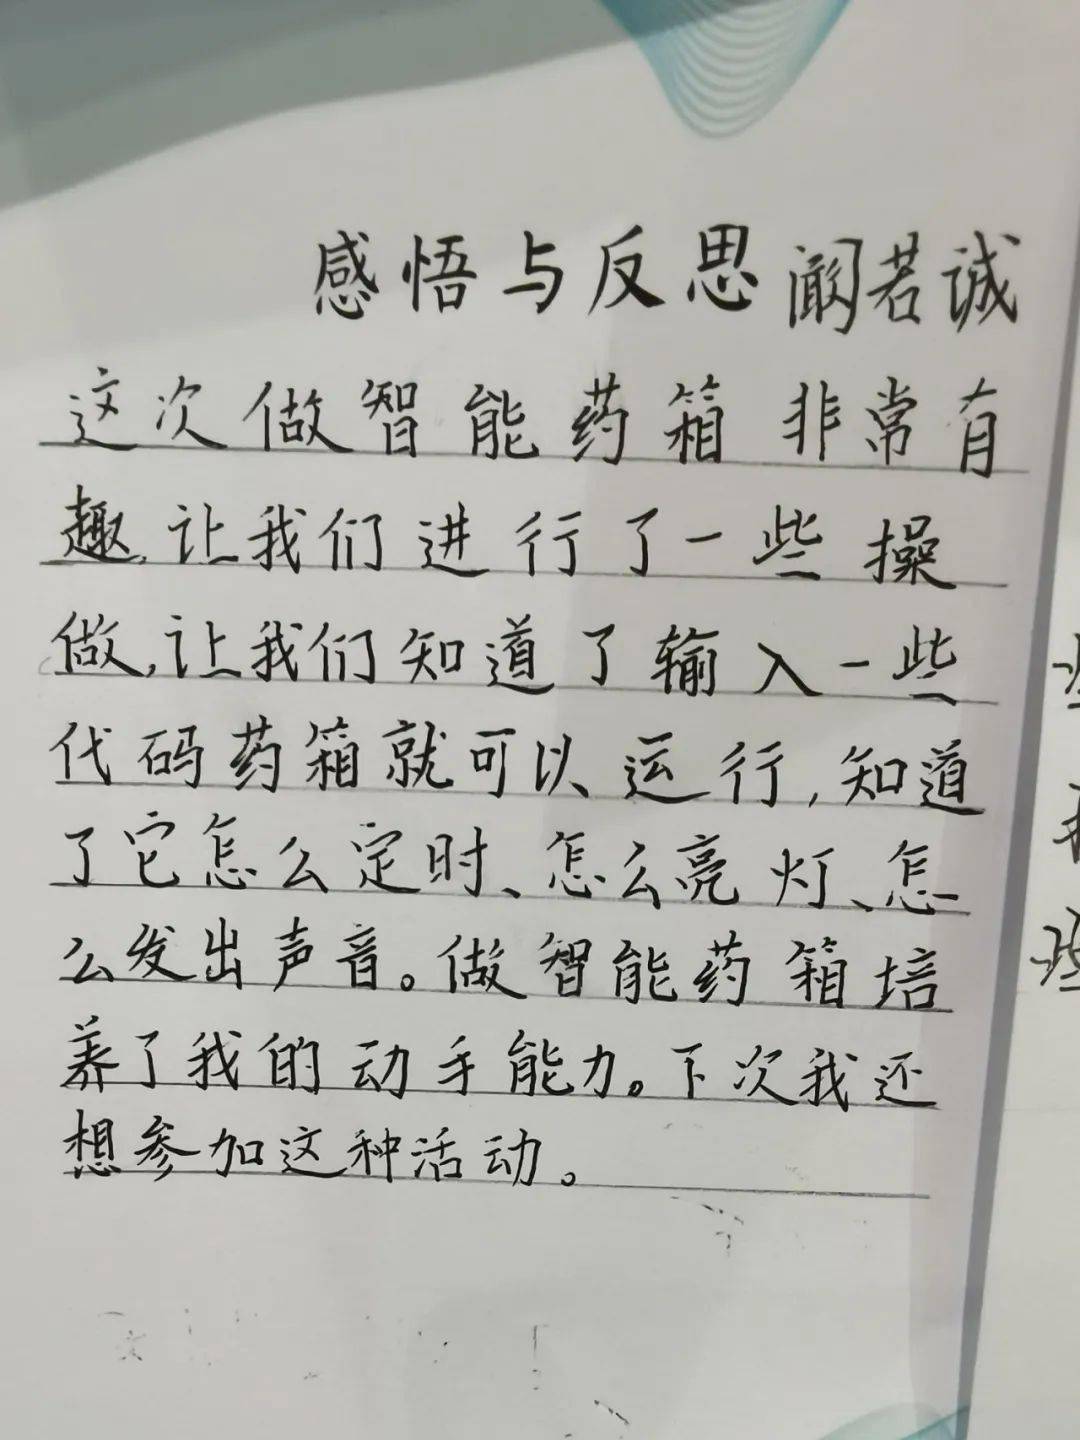 感悟与反思 阚若诚
这次做智能药箱非常有
趣,让我们进行了一些操
做,让我们知道了输入一些
代码药箱就可以运行,知道
了它怎么定时、怎么亮灯、怎
么发出声音。做智能药箱培
养了我的动手能力。下次我还
想参加这种活动。